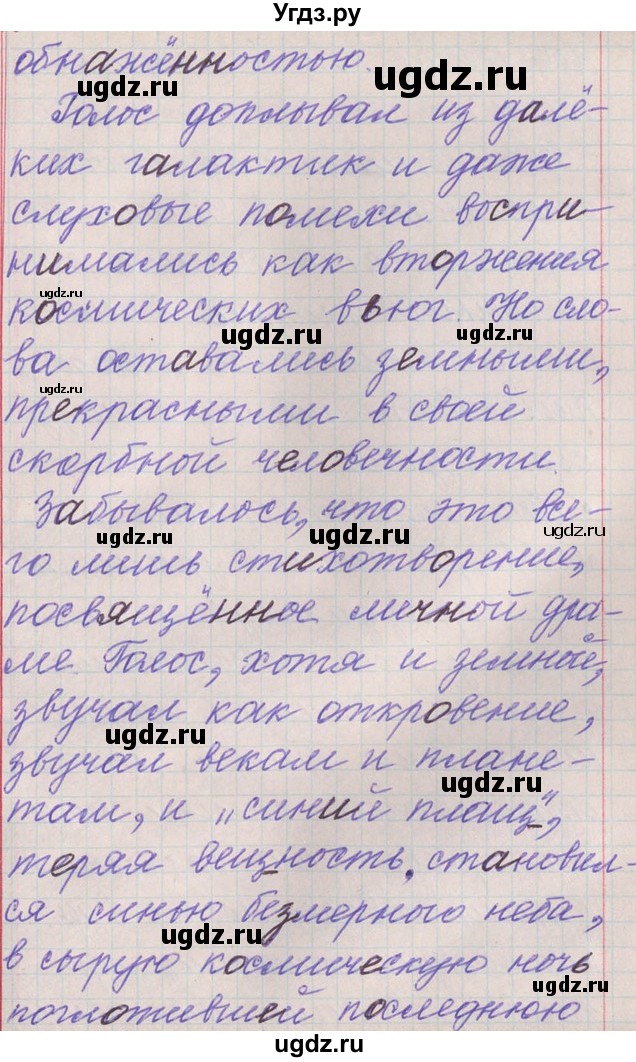 Угдз.ру
обнажённостью.
ugdz.ru
ugdz.ru
Голос доплывал из далё-
ких галактик и даже
ugdz.ru
слуховые помехи воспри-
нимались как вторжения
ugdz.ru
космических вьюг. Но сло-
ugdz.ru
ва оставались земными,
ugdz.ru
прекрасными в своей
скорбной человечности.
Забывалось, что это все-
ugdz.ru
ugdz.ru
ugdz.ru
го лишь стихотворение,
посвящённое личной дра-
ме. Голос, хотя и земной,
звучал как откровение,
ugdz.ru
звучал векам и плане-
ugdz.ru
там, и „синий плащ",
теряя вещность, становил-
ся синью безмерного неба,
ugdz.ru
в сырую космическую ночь
поглотившей последнюю
ugdz.ru